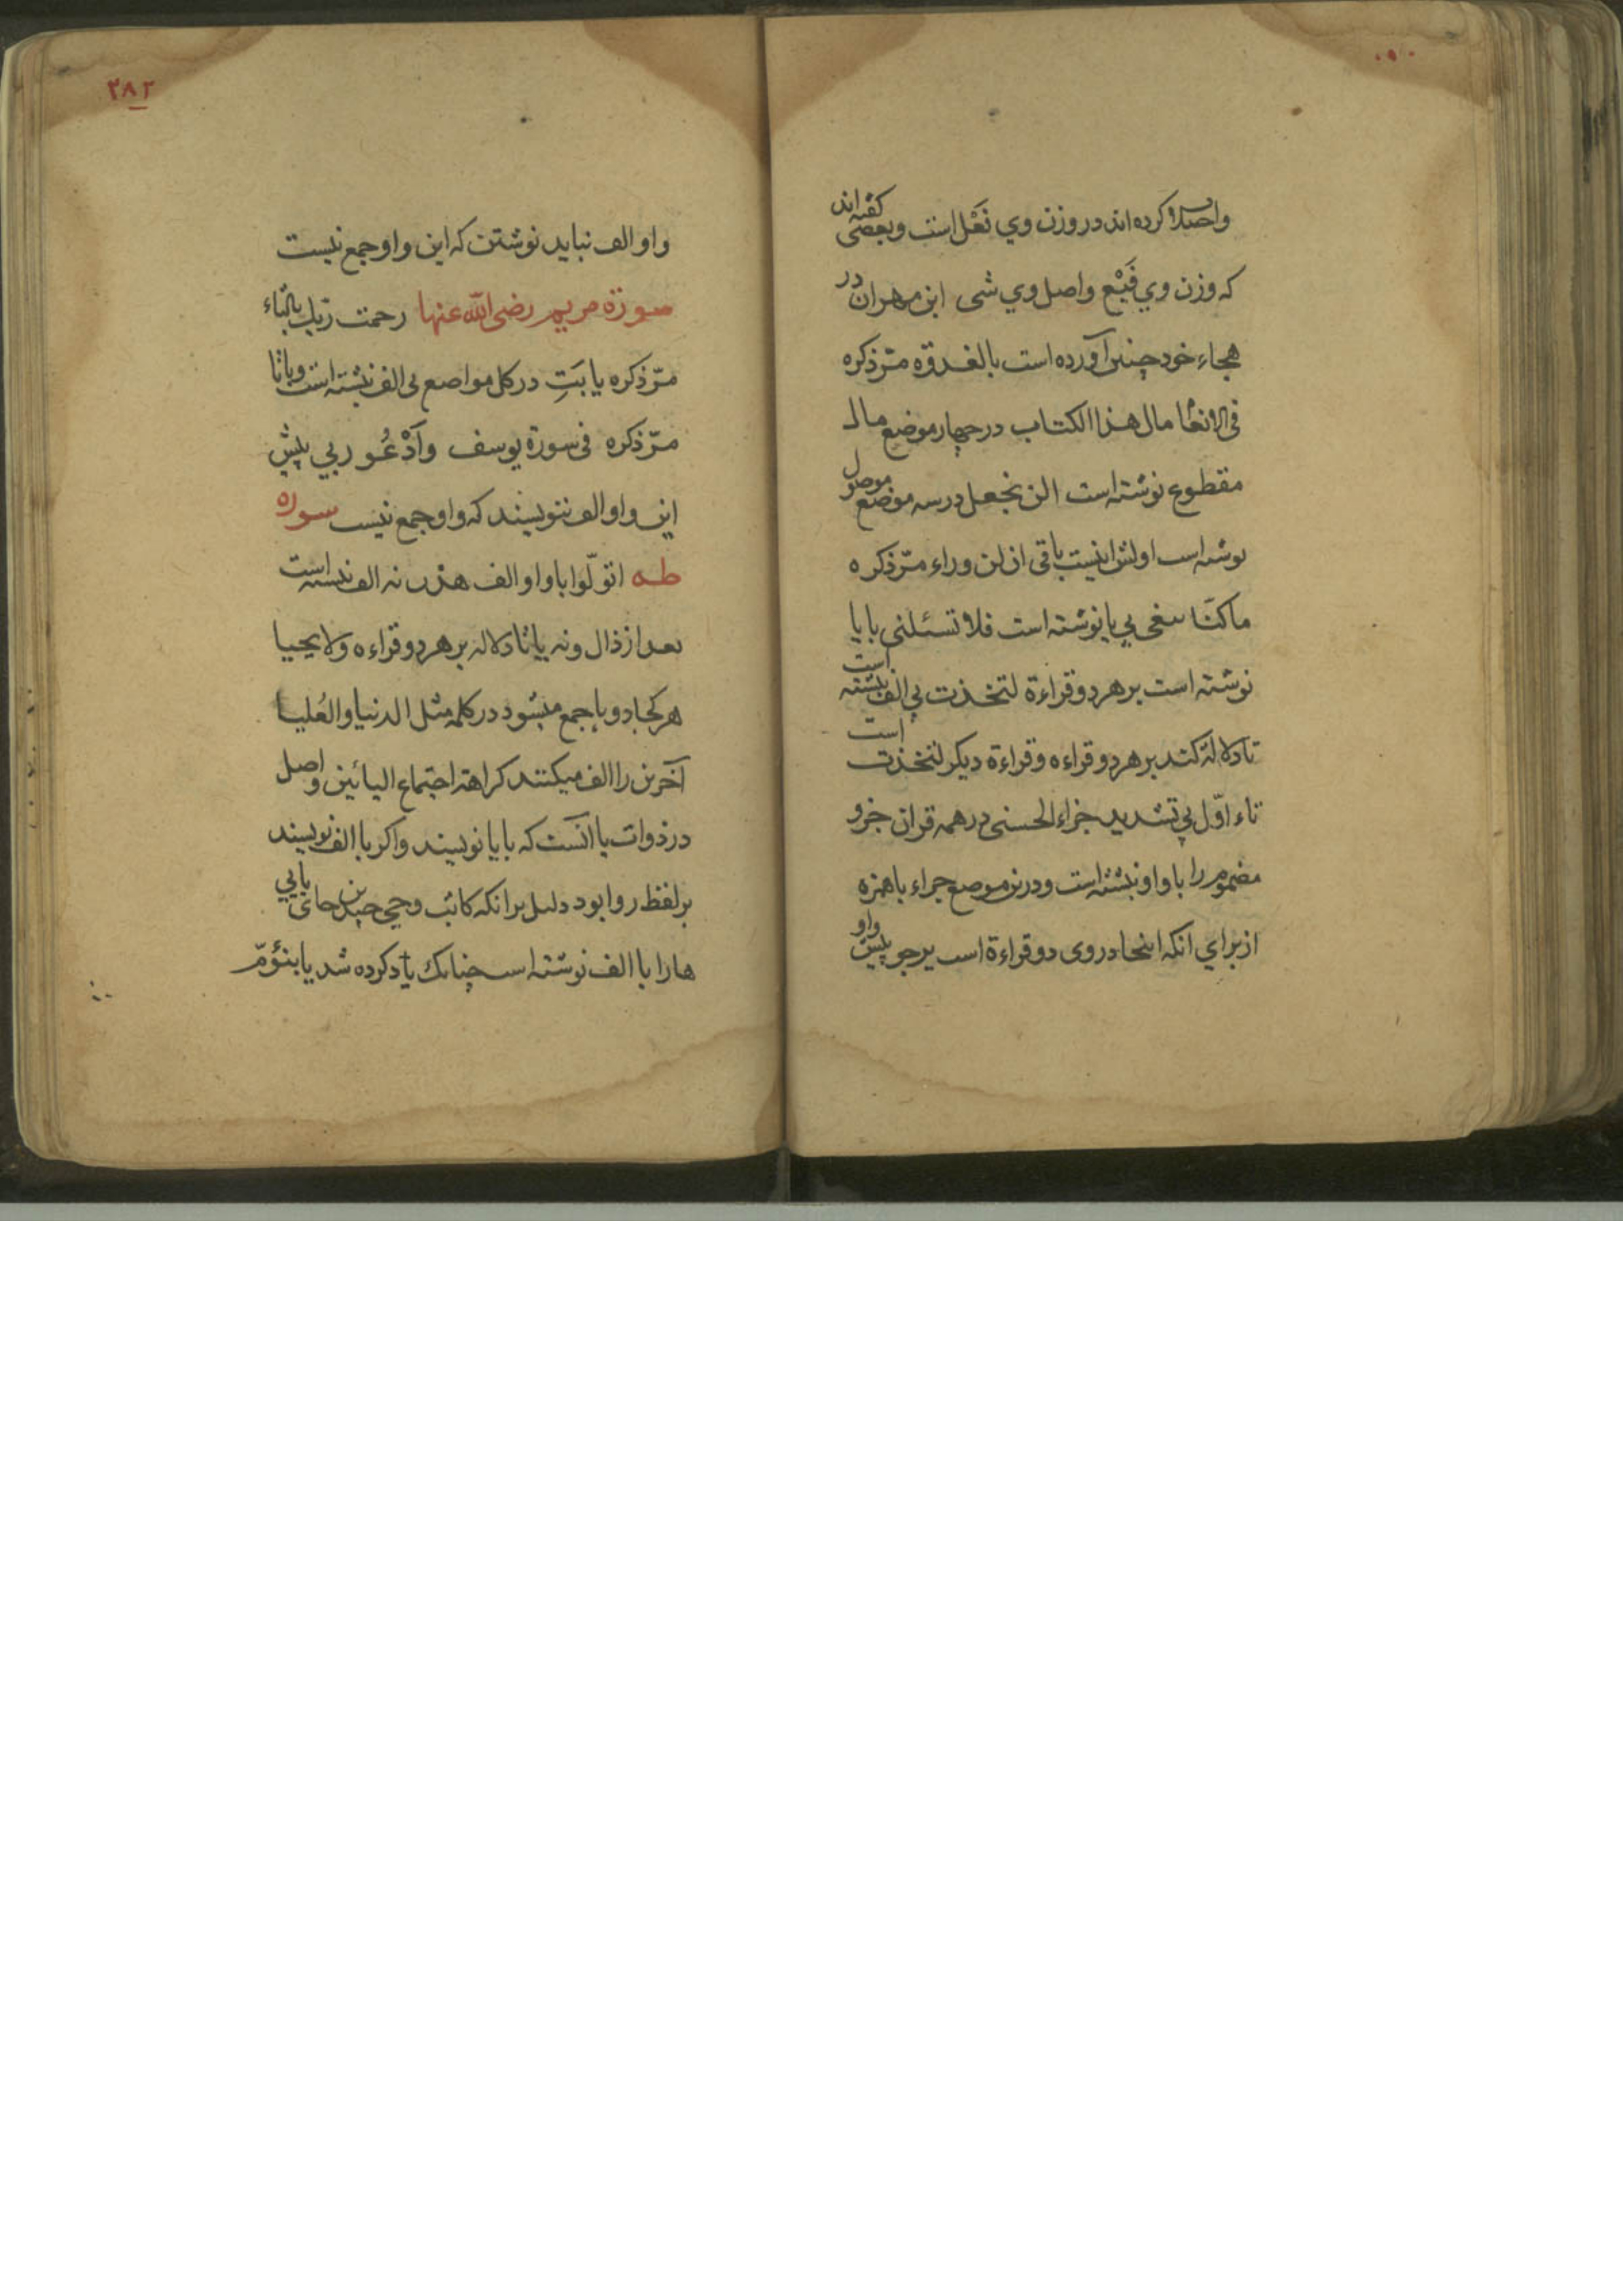 واصلا کرده اند در وزن وي نَعْل است وبعضى کفته اند
که وزن وي فَبْع واصل وي شى ابن مهران در
هجاء خود چنین آورده است بالغدوة مرّ ذکره
فى الانعا مال هذا الکتاب در چهار موضع مال
مقطوع نوشته است الن نجعل در سه موضع موصول
نوشته است اولش اینست باقى ان لن وراء مرّ ذکره
ما کنّا نبغى بي يا نوشته است فلا تسئلنى با یا
نوشته است بر هر دو قراءة لتخذت بي الف نبشته است
تا دلالة کند بر هر دو قراءه وقراءة دیکر لتخذت است
تاء اوّل بي تشدید جزاء الحسنى در همه قران جزو
مضموم را با واو نبشته است ودرین موضع جزاء با همزه
از براي انکه اینجا در وى دو قراءة است یرجو پیش واو
٢٨٢
واو الف نباید نوشتن که این واو جمع نیست
سورة مریم رضى الله عنها رحمت ربّك بالتاء
مرّ ذکره یا بَتِ در کل مواضع بى الف نبشته است وبا تا
مرّ ذکره فى سورة یوسف وَاَدْعُو ربي پیش
این واو الف ننویسند که واو جمع نیست سوره
طه اتوکّوا با واو الف هذن نه الف نبسته است
بعد از ذال ونه یا تا دلاله بر هر دو قراءه ولا یحییا
هر کجا دو یا جمع میشود در کلمه مثل الدنیا والعُلیا
آخرین را الف میکنند کراهة اجتماع الیائین واصل
در ذوات یا آنست که با یا نویسند واکر با الف نویسند
بر لفظ روا بود دلیل بر انکه کاتب وحي چندین جاى یایي
ها را با الف نوشته است چنانك یاد کرده شد یابنؤمّ